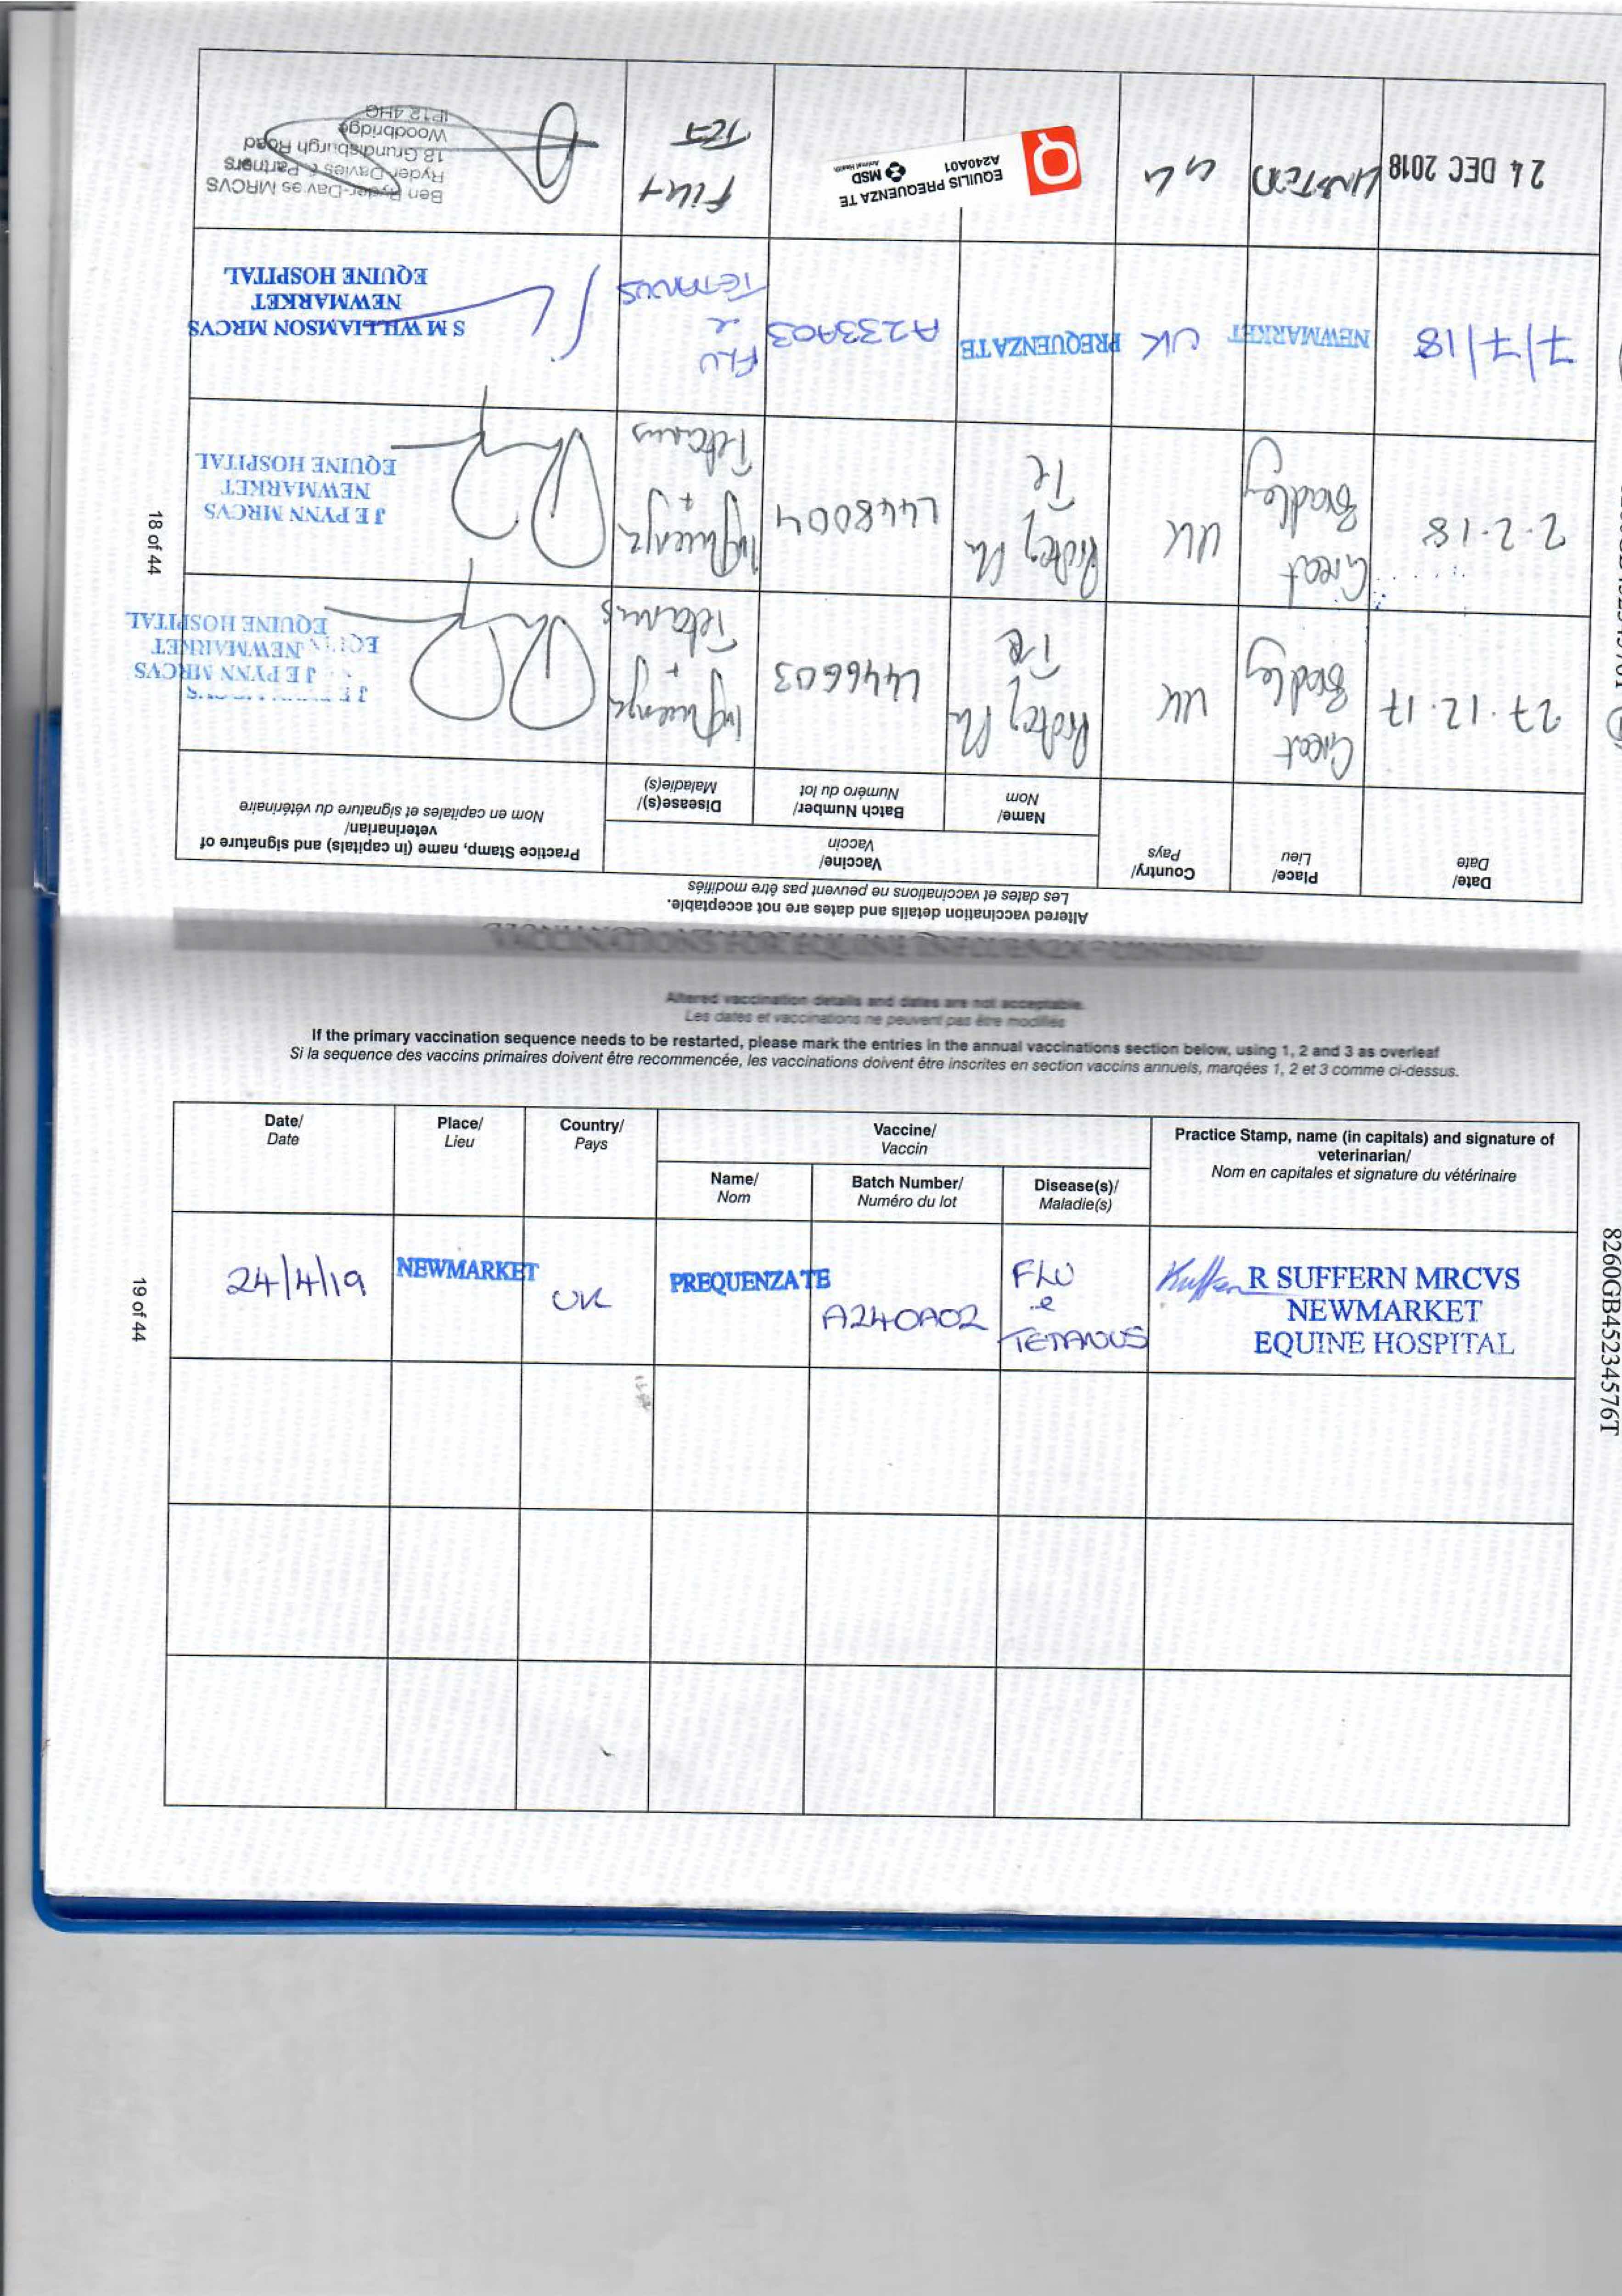 VACCINATIONS FOR EQUINE INFLUENZA - CONTINUED
Altered vaccination details and dates are not acceptable.
Les dates et vaccinations ne peuvent pas être modifiés
Date/
Date
Place/
Lieu
Country/
Pays
Vaccine/
Vaccin
Name/
Nom
Batch Number/
Numéro du lot
Disease(s)/
Maladie(s)
Practice Stamp, name (in capitals) and signature of
veterinarian/
Nom en capitales et signature du vétérinaire
27.12.17
Great
Bradley
UK
Te
L446603
Influenza
+
Tetanus
J E PYNN MRCVS
NEWMARKET
EQUINE HOSPITAL
2.2.18
Great
Bradley
UK
Te
L448004
Influenza
+
Tetanus
J E PYNN MRCVS
NEWMARKET
EQUINE HOSPITAL
7/7/18
NEWMARKET
UK
PREQUENZA TE
A233A03
FLU
e
TETANUS
S M WILLIAMSON MRCVS
NEWMARKET
EQUINE HOSPITAL
24 DEC 2018
EQUILIS PREQUENZA TE
A240A01
MSD
Animal Health
Flu +
TET
Ben Ryder-Davies MRCVS
Ryder-Davies & Partners
18 Grundisburgh Road
Woodbridge
IP12 4HG
18 of 44
Altered vaccination details and dates are not acceptable.
Les dates et vaccinations ne peuvent pas être modifiés
If the primary vaccination sequence needs to be restarted, please mark the entries in the annual vaccinations section below, using 1, 2 and 3 as overleaf
Si la sequence des vaccins primaires doivent être recommencée, les vaccinations doivent être inscrites en section vaccins annuels, marqées 1, 2 et 3 comme ci-dessus.
Date/
Date
Place/
Lieu
Country/
Pays
Vaccine/
Vaccin
Name/
Nom
Batch Number/
Numéro du lot
Disease(s)/
Maladie(s)
Practice Stamp, name (in capitals) and signature of
veterinarian/
Nom en capitales et signature du vétérinaire
24/4/19
NEWMARKET
UK
PREQUENZA TE
A240A02
FLU
e
TETANUS
R SUFFERN MRCVS
NEWMARKET
EQUINE HOSPITAL
19 of 44
8260GB45234576T